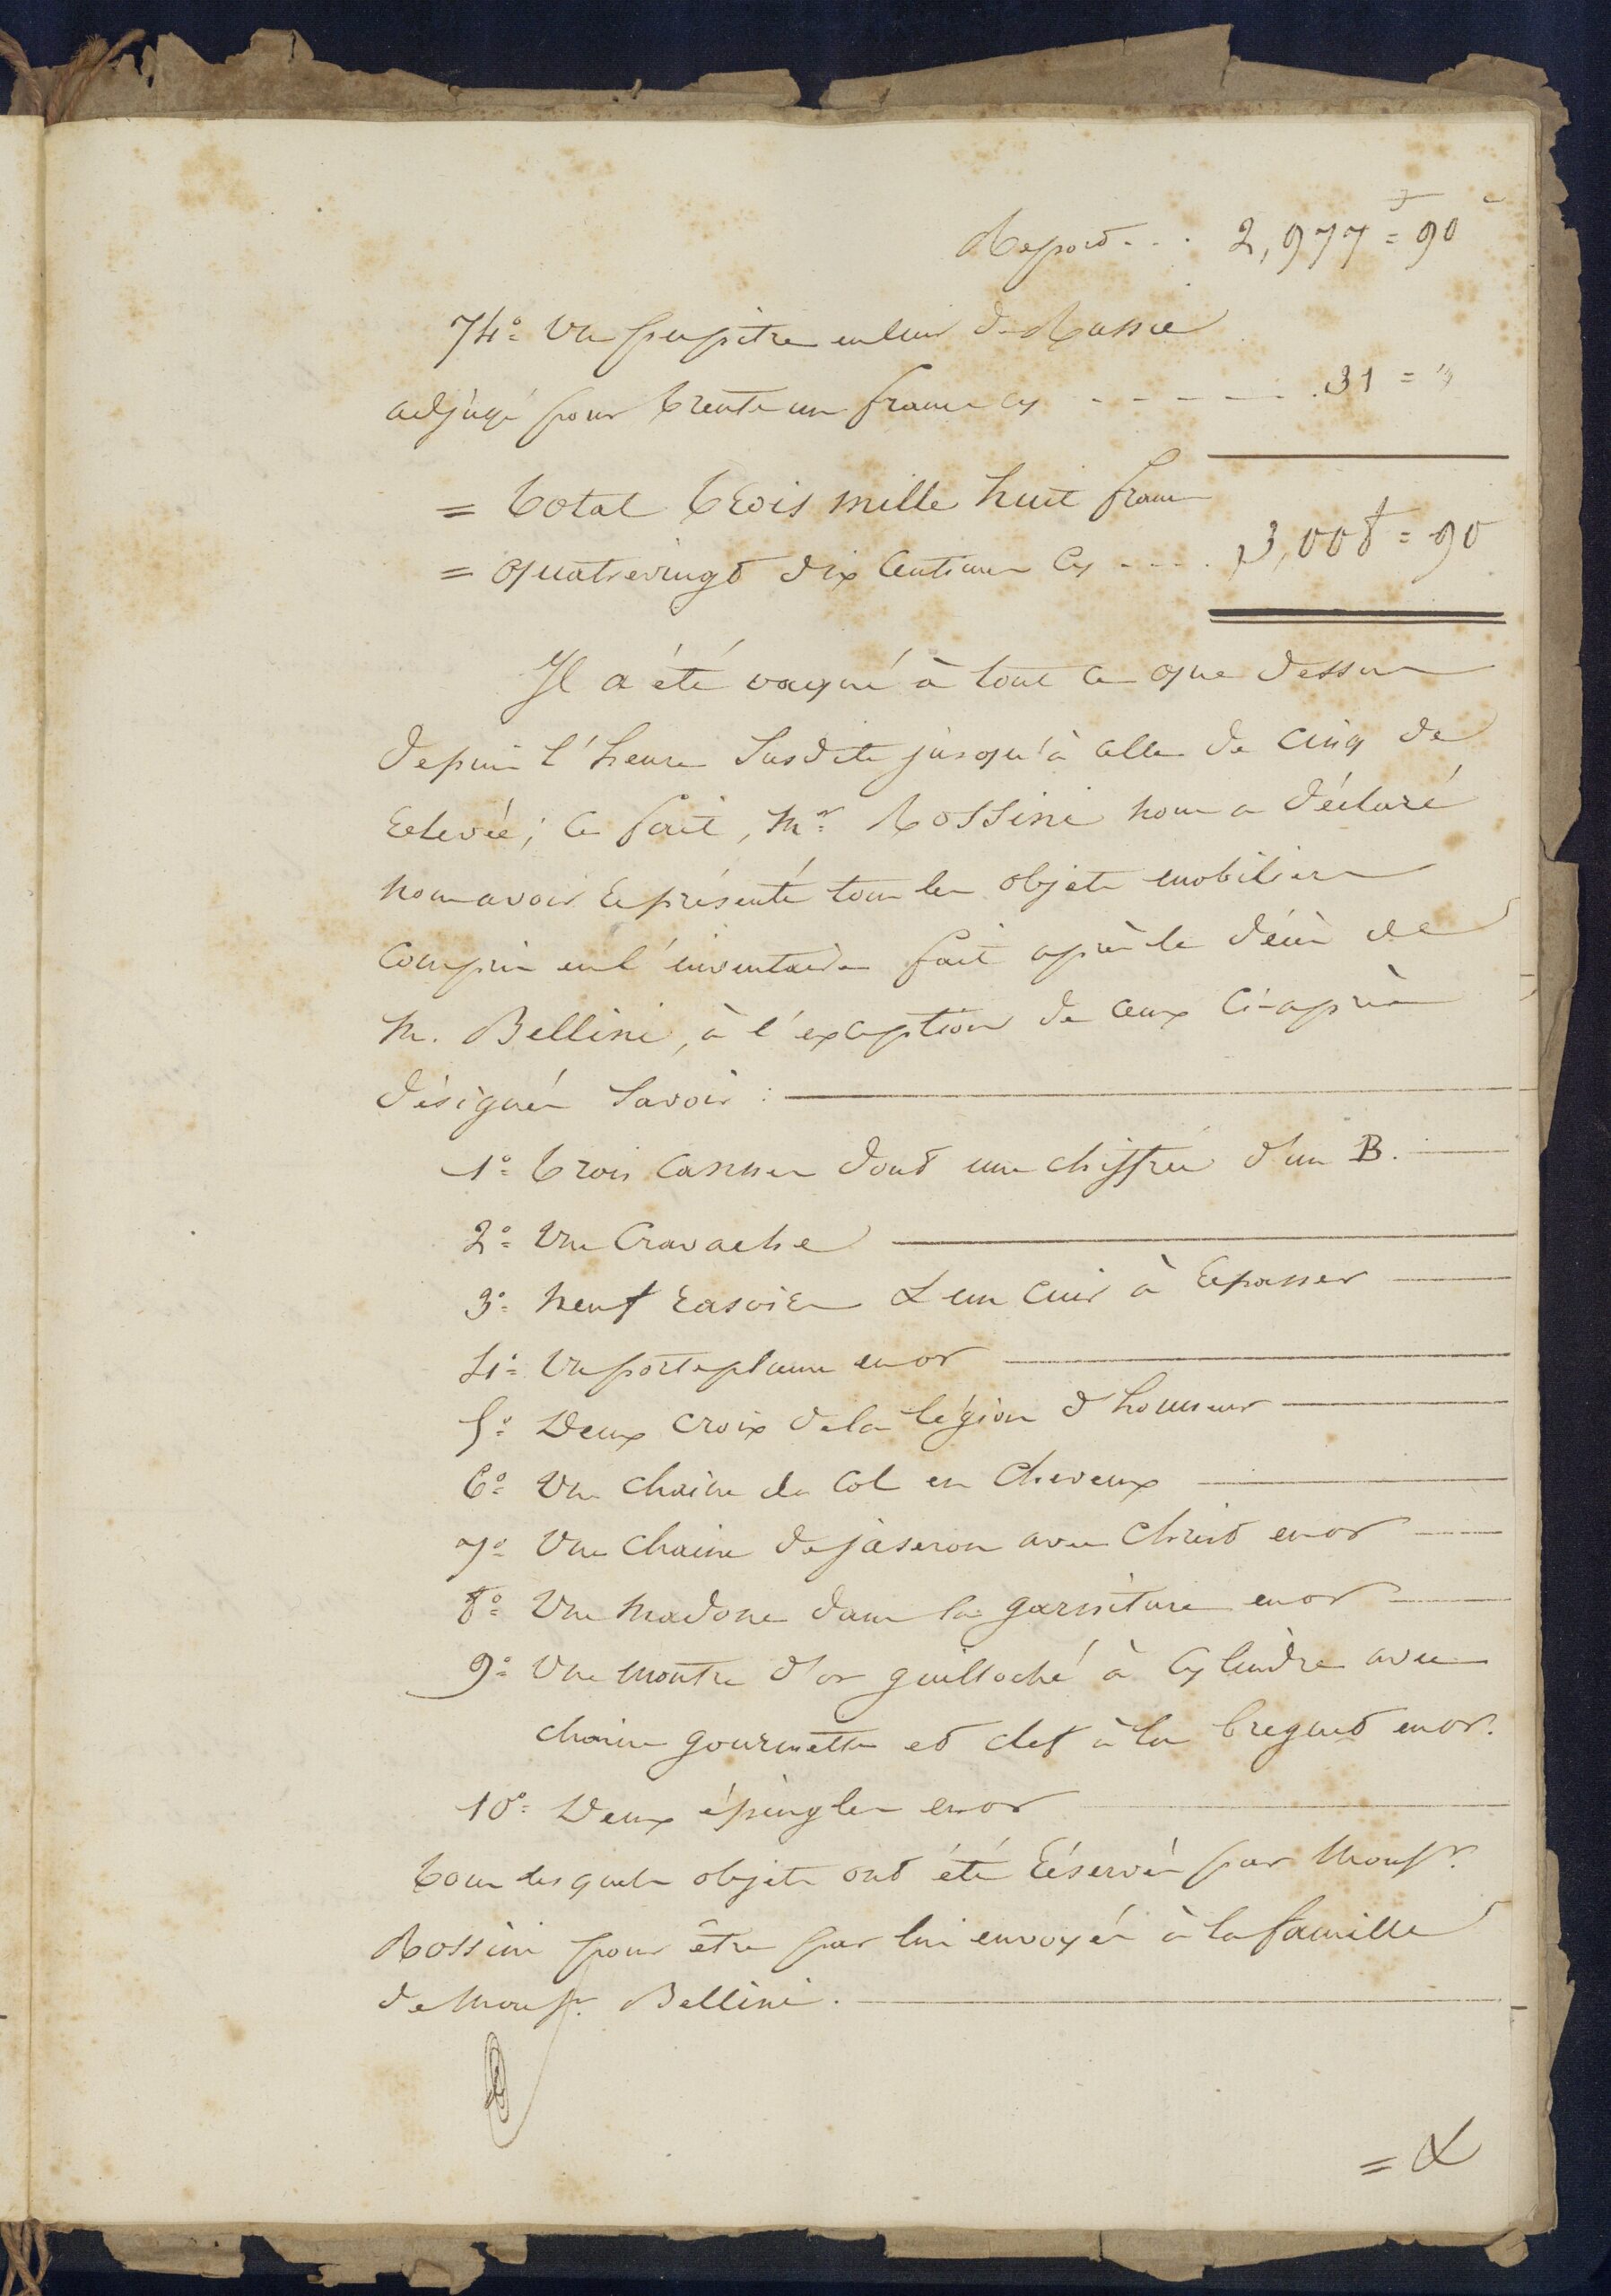 Report - - - 2,977 f = 90 c
74°= Un pupitre en cuir de Russie
adjugé pour trente un francs cy - - - - - - 31 = "
= Total trois mille huit francs
= quatrevingt dix centimes cy - - - - 3,008 = 90
Il a été vaqué à tout ce que dessus
depuis l'heure susdite jusqu'à celle de cinq de
relevée; ce fait, Mr. Rossini nous a déclaré
nous avoir représenté tous les objets mobiliers
compris en l'inventaire fait après le décès de
M. Bellini, à l'exception de ceux ci-après
désignés Savoir :
1°= Trois cannes dont une chiffrée d'un B.
2°= Une Cravache
3°= Neuf rasoirs & un cuir à repasser
4°= Un porteplume en or
5°= Deux croix de la légion d'honneur
6°= Une chaîne de col en cheveux
7°= Une chaine de jaseron avec Christ en or
8°= Une Madone dans la garniture en or
9°= Une montre d'or guilloché à cylindre avec
chaine gourmette et clef à la breguet en or.
10°= Deux épingles en or
Tous lesquels objets ont été réservés par Monsr.
Rossini pour être par lui envoyés à la famille
de Monsr. Bellini.
= &